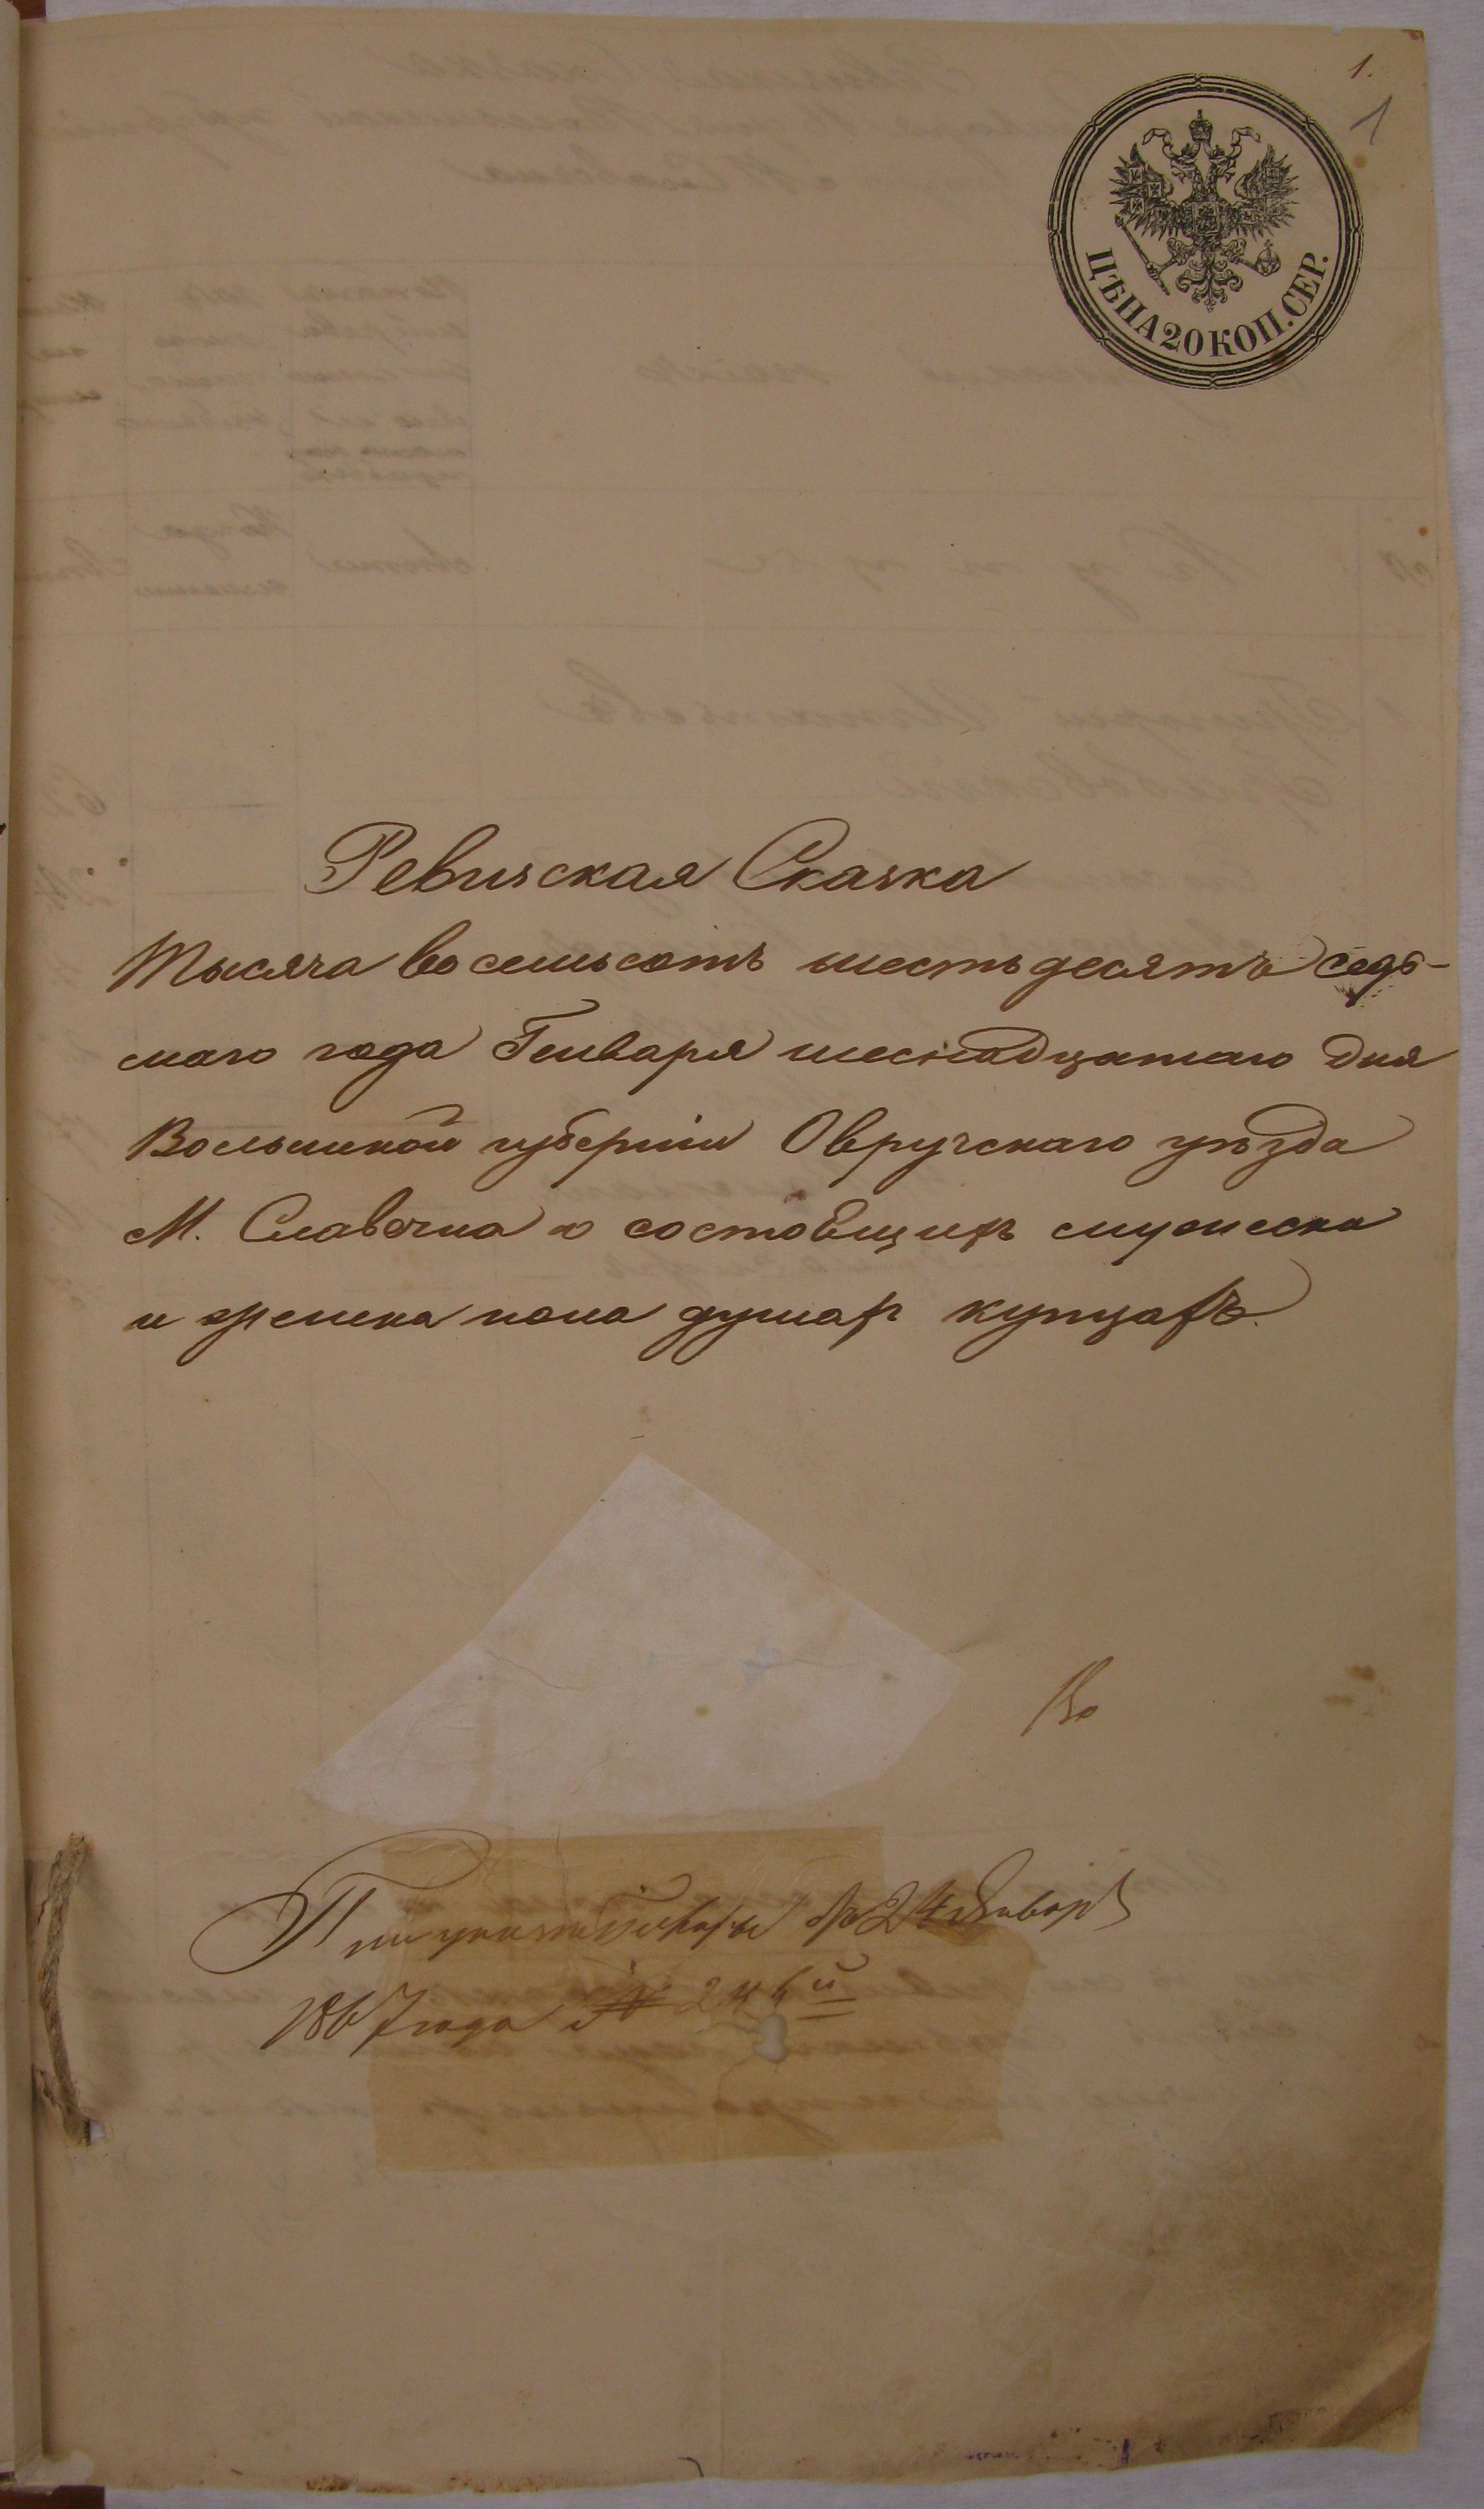 1.
1
ЦѢНА 20 КОП. СЕР.
Ревизская Сказка
Тысяча восемьсотъ шестьдесятъ седь-
маго года Генваря шеснадцатаго дня
Волынской губерніи Овручскаго уѣзда
М. Словечна о состоящихъ мужеска
и женска пола душах купцахъ.
Во
При указѣ 24 Январ
1867 года №